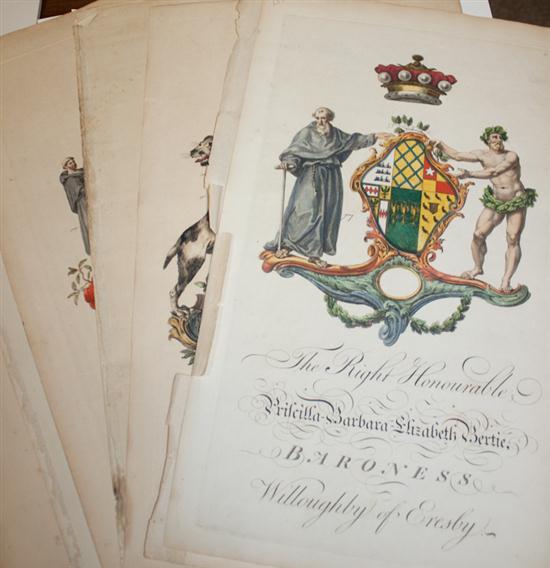 The Right Honourable
Priscilla-Barbara-Elizabeth Bertie.
BARONESS
Willoughby of Eresby.